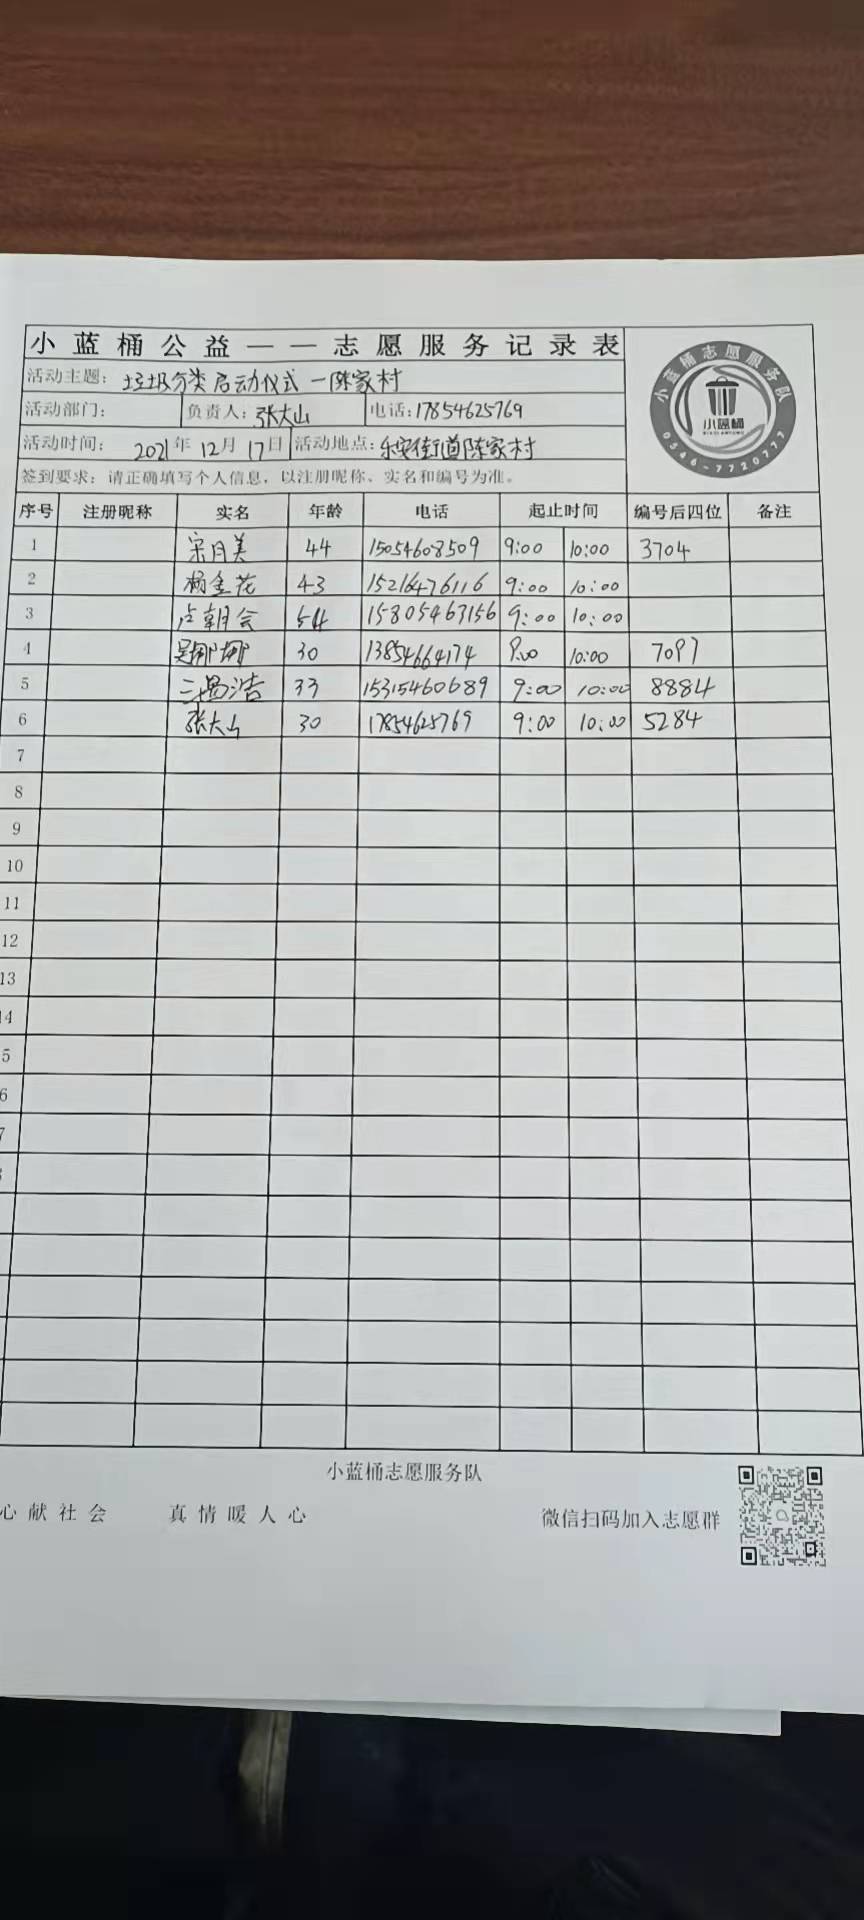 小蓝桶公益——志愿服务记录表
活动主题：垃圾分类启动仪式—陈家村
活动部门： 负责人：张大山 电话：17854625769
活动时间： 2021年12月17日 活动地点：乐安街道陈家村
签到要求：请正确填写个人信息，以注册昵称、实名和编号为准。
小蓝桶志愿服务队
小蓝桶
0546-7720777
序号 注册昵称 实名 年龄 电话 起止时间 编号后四位 备注
1 宋月美 44 15054608509 9:00 10:00 3704
2 杨金花 43 15216476116 9:00 10:00
3 卢朝会 54 15805463156 9:00 10:00
4 吴娜娜 30 13854664174 9:00 10:00 7097
5 33 15315460689 9:00 10:00 8884
6 张大山 30 17854625769 9:00 10:00 5284
7
8
9
10
11
12
13
14
5
6
7
小蓝桶志愿服务队
心献社会 真情暖人心 微信扫码加入志愿群